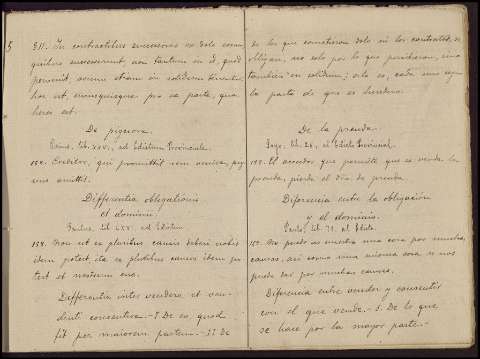 §11. In contractibus successores ex dolo eorum,
quibus successerunt, non tantum in id, quod
pervenit, verum etiam in solidum tenentur,
hoc est, unusquisque pro ea parte, qua
heres est.
De pignora.
Gaius, lib. XXV., ad Edictum Provinciale.
158. Creditor, qui permittit rem venire, pig
nus amittit.
Differentia obligationis
et dominii.
Paulus, lib. LXX. ad Edictum
159. Non ut ex pluribus causis deberi nobis
idem potest, ita ex pluribus causis idem po-
test et nostrum esse.
Differentia inter vendere et ven-
denti consentire. - I. De eo, quod
fit per maiorem partem. - II. De
de los que cometieron dolo en los contratos, se
obligan, no solo por lo que percibieron, sino
tambien en solidum; esto es, cada uno segun
la parte de que es heredero.
De la prenda.
Gayo, lib. 26, al Edicto Provincial.
158. El acreedor que permite que se venda la
prenda, pierde el dro. de prenda.
Diferencia entre la obligación
y el dominio.
Paulo, lib. 70. al Edicto.
159. No puede ser nuestra una cosa por muchas
causas, así como una misma cosa se nos
puede deber por muchas causas.
Diferencia entre vender y consentir
con el que vende. - I. De lo que
se hace por la mayor parte. -